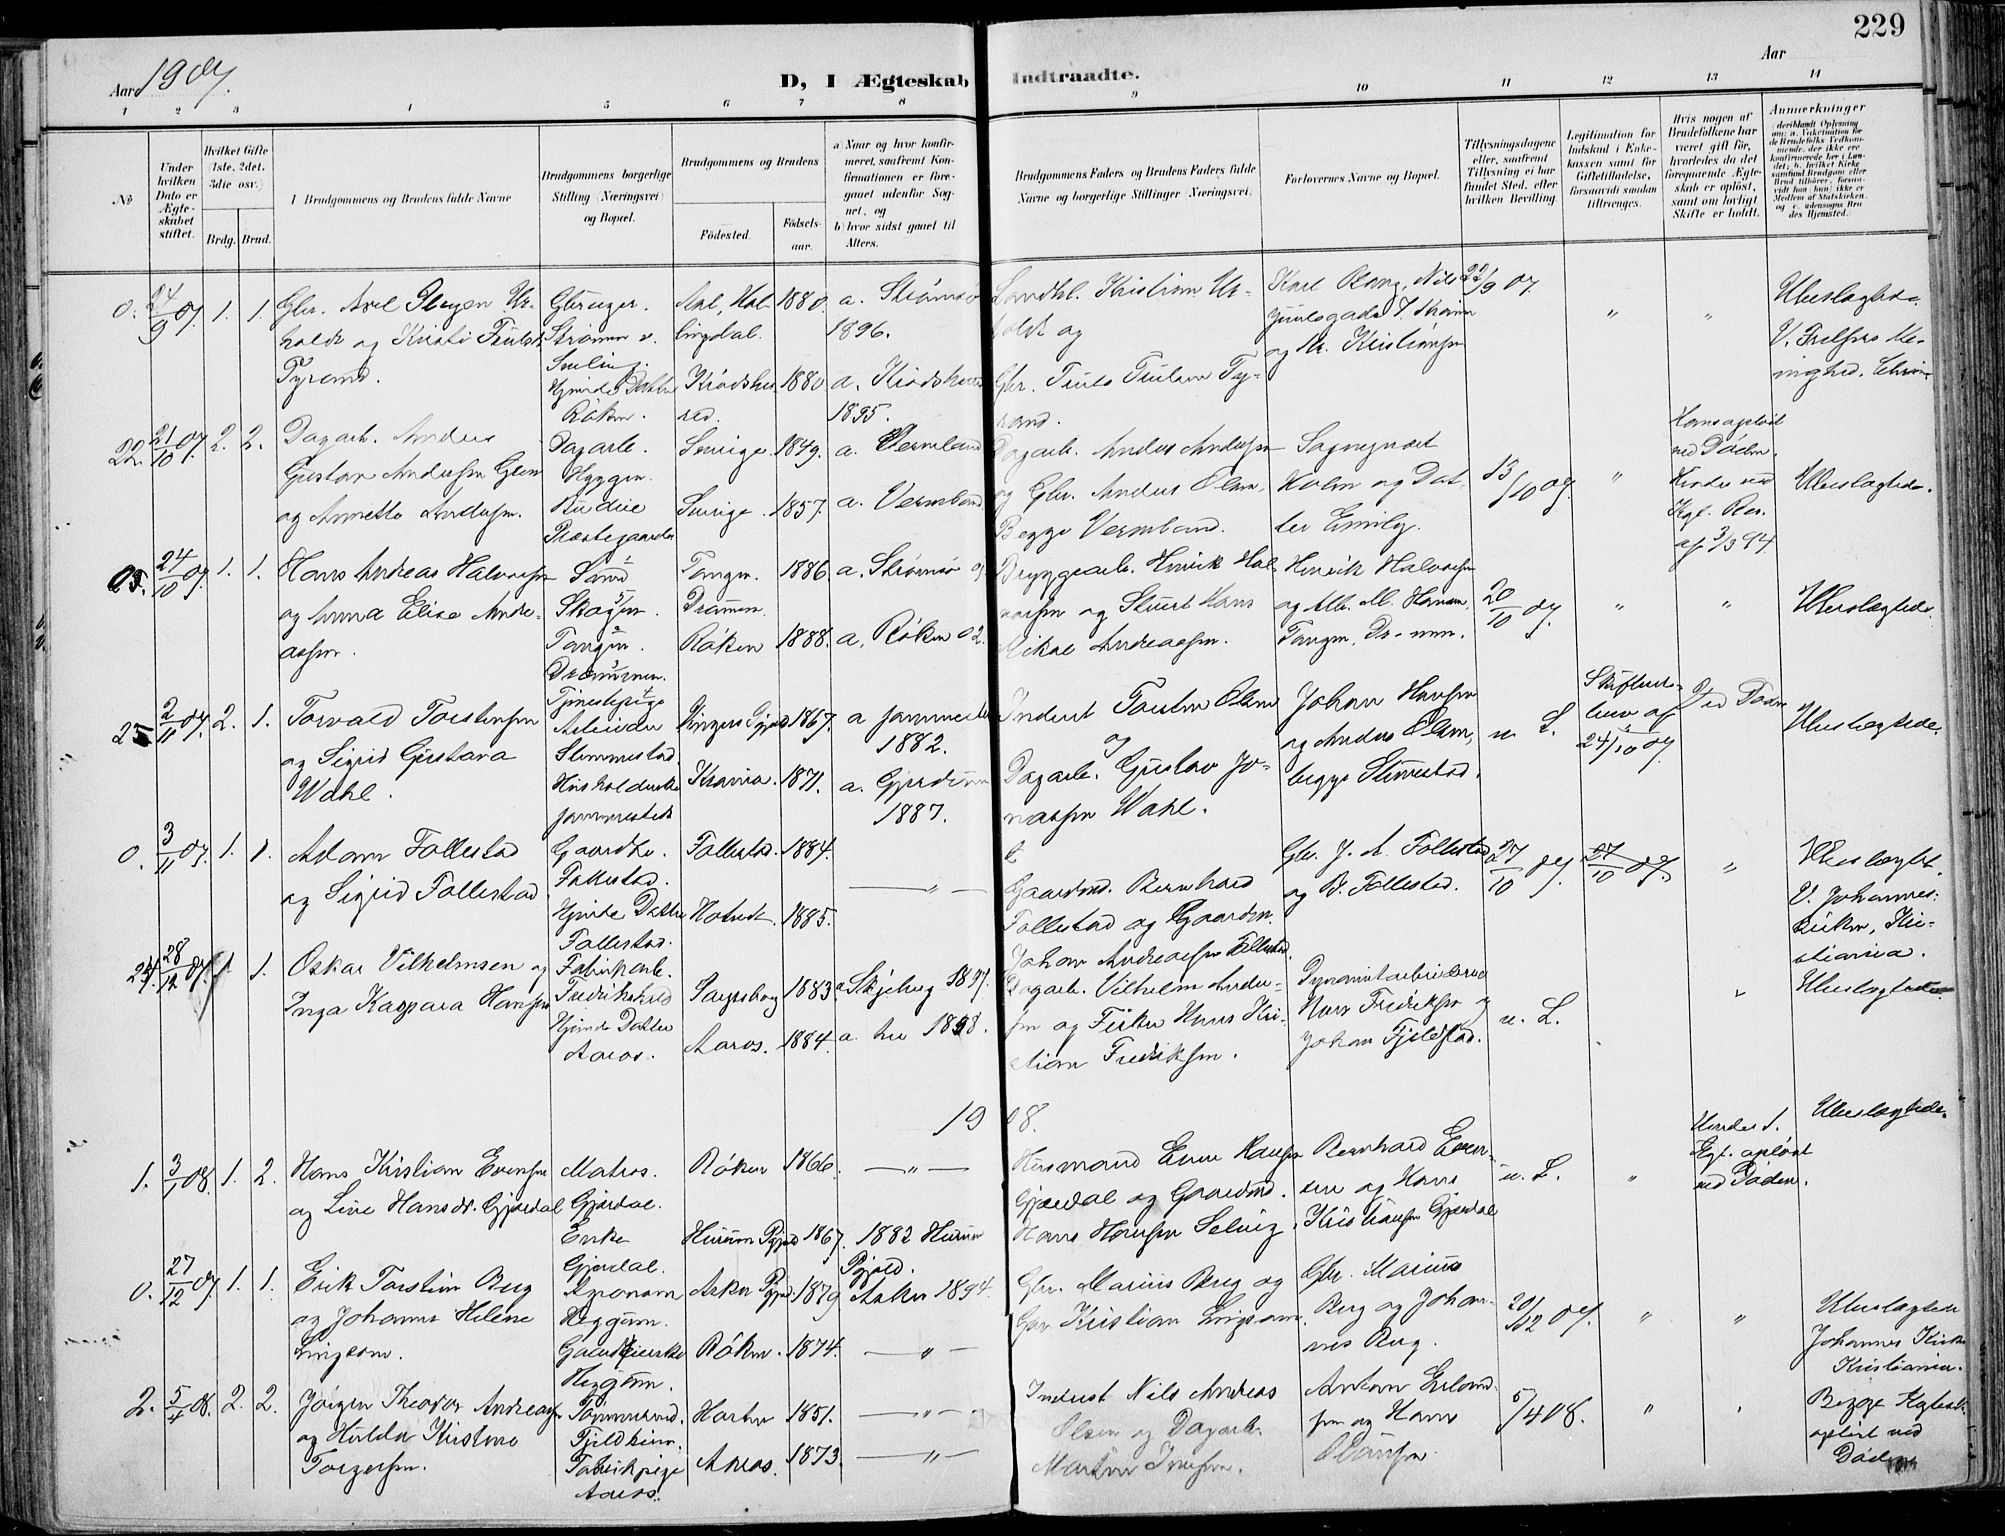 229
Aar 1907.
D, I Ægteskab Indtraadte.
Aar
1 2 3 4 5 6 7 8 9 10 11 12 13 14
No
Under hvilken Dato er Ægteskabet stiftet.
Hvilket Gifte (1ste, 2det, 3die osv.)
Brdg. Brud.
I Brudgommens og Brudens fulde Navne
Brudgommens borgerlige Stilling (Næringsvei) og Bopæl.
Brudgommens og Brudens
Fødested.
Fødsels-aar.
a) Naar og hvor konfirmeret, saafremt Konfirmationen er foregaaet udenfor Sognet, og
b) hvor sidst gaaet til Alters.
Brudgommens Faders og Brudens Faders fulde Navne og borgerlige Stillinger (Næringsvei).
Forlovernes Navne og Bopæl.
Tillysningsdagene eller, saafremt Tillysning ei har fundet Sted, efter hvilken Bevilling.
Legitimation for Indskud i Enkekassen samt for Giftetilladelse, forsaavidt saadan tiltrænges.
Hvis nogen af Brudefolkene har været gift før, hvorledes da det foregaaende Ægteskab er opløst, samt om lovligt Skifte er holdt.
Anmærkninger
0. 24/9 07. 1. 1.
Gbr.
og Kristi
Tyrand.
Gbruger.
Strømm
Hjemmev Datter
Røken.
Aal, Hallingdal. 1880. a. Strømsø 1896.
Krødsherred. 1880. a. Krødsherred 1895.
Landhl. Kristian
og
Gbr. Truls Trulsen Tyrand.
og Nr. Kristiansen
22/9 07.
"
"
Ubeslægtede.
V. Frelsers Menighed. Chria
22. 21/10 07. 2. 2.
Dagarb. Anders
Gustav Andersen Glen
og Annette Andersen.
Dagarb.
Hyggen.
Budeie
Præstegaarden
Sverige. 1849. a. Vermland
Sverige. 1857. a. Vermland
Dagarb. Anders Andersen
og Gbr. Anders Olsen,
Begge Vermland.
Sogneprest
Holm og Datter Emily.
13/10 07.
"
Hans opløst
ved Døden.
Hendes ved
Kgl. Res.
af 3/3 94.
Ubeslægtede.
05. 24/10 07. 1. 1.
Hans Andreas Halvorsen
og Anna Elise Andreassen.
Skogen.
Tangen.
Drammen.
Tjenestepige
Tangen. 1886. a. Strømsø
Drammen.
Røken 1888. a. Røken 02.
Bryggearb. Henrik Halvorsen og Stuert Hans
Mikal Andreassen.
Henrik Halvorsen
og Alb. M. Hansen,
Tangen, Dr-mmn.
20/10 07.
"
"
Ubeslægtede.
25 2/11 07. 2. 1.
Torvald Torstensen
og Sigrid Gustava
Wahl.
Arbeider
Slemmestad.
Husholderske
1867. a
1882.
Kravia. 1871. a. Gjerdrum
1887.
Inderst Torsten Olsen
og
Dagarb. Gustav Jonassen Wahl.
Johan Hansen
og Anders Olsen,
begge Slemmestad.
u. L.
24/10 07.
Ved Døden
Ubeslægtede.
0. 3/11 07. 1. 1.
Adam Follestad
og Sigrid Follestad
Gaardbr.
Follestad.
Hjemme Datter
Follestad.
Follestad. 1884.
— " —
Hotvedt. 1885.
Gaardmd. Bernhard
Follestad og Gaardm.
Johan Andreassen Follestad
Gbr. J. A. Follestad
og B. Follestad.
27/10 07. 27/10 07.
"
Ubeslægtet.
V. Johanneskirken, Kristiania.
24. 28/12 07. 1. 1.
Oskar Vilhelmsen og
Inga Kaspara Hansen
Fabrikarb.
Fredrikstad
Hjemme Datter
Aaros.
Sarpsborg 1883. a. Skjeberg 1897.
Aaros. 1884. a. her 1898.
Dagarb. Vilhelm Andersen og Fisker Hans Kristian Fredriksen.
Dynamitarbeiderne
Hans Fredriksen og
Johan Fjeldstad.
u. L.
"
Ubeslægtede
1908.
1. 3/1 08. 1. 2.
Hans Kristian Evensen
og Live Hansdr. Gjerdal
Matros.
Gjerdal.
Enke
Gjerdal.
Røken 1866. — " —
Hurum Pgjeld 1867. 1882 Hurum
Pgjeld.
Husmand Even Hansen
Gjerdal og Gaardmd.
Hans Hansen Selvig.
Bernhard Evensen og Hans
Kristiansen Gjerdal
u. L.
"
Hendes 1.
Egt. opløst
ved Døden.
Ubeslægtede.
0. 27/12 07. 1. 1.
Erik Torstein Berg
og Johanne Helene
Lingsom.
Agronom
Heggum.
Gaardeierske
Heggum.
Asker Pgjeld. 1879 Asker 1894.
Røken. 1874. — " —
Gbr. Marius Berg og
Gbr. Kristian Lingsom.
Gbr. Marius
Berg og Johannes Berg.
20/12 07.
"
"
Ubeslægtede
Johannes Kirke
Kristiania.
2. 5/4 08. 2. 2.
Jørgen Theodor Andreassen
og Hulda Kristine
Torgersen.
Tømmermd.
Fabrikpige
Aaros.
Horten 1851. — " —
Aaros. 1873. — " —
Inderst Nils Andreas
Olsen og Dagarb.
Martin Iversen.
Anton Erlandsen og Hans
5/4 08.
"
Begge Egtesk.
opløst ved
Døden